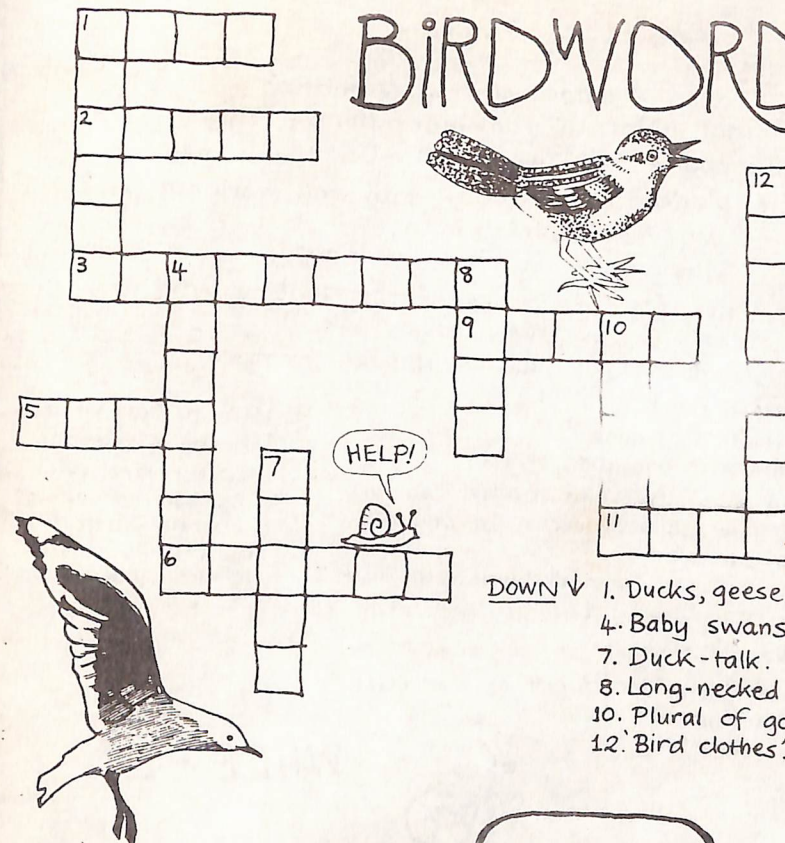 BiRDWORD
1
2
12
3 4 8
9 10
5
7
HELP!
11
6
DOWN ↓ 1. Ducks, geese
4. Baby swans
7. Duck-talk.
8. Long-necked
10. Plural of go
12. 'Bird clothes'.